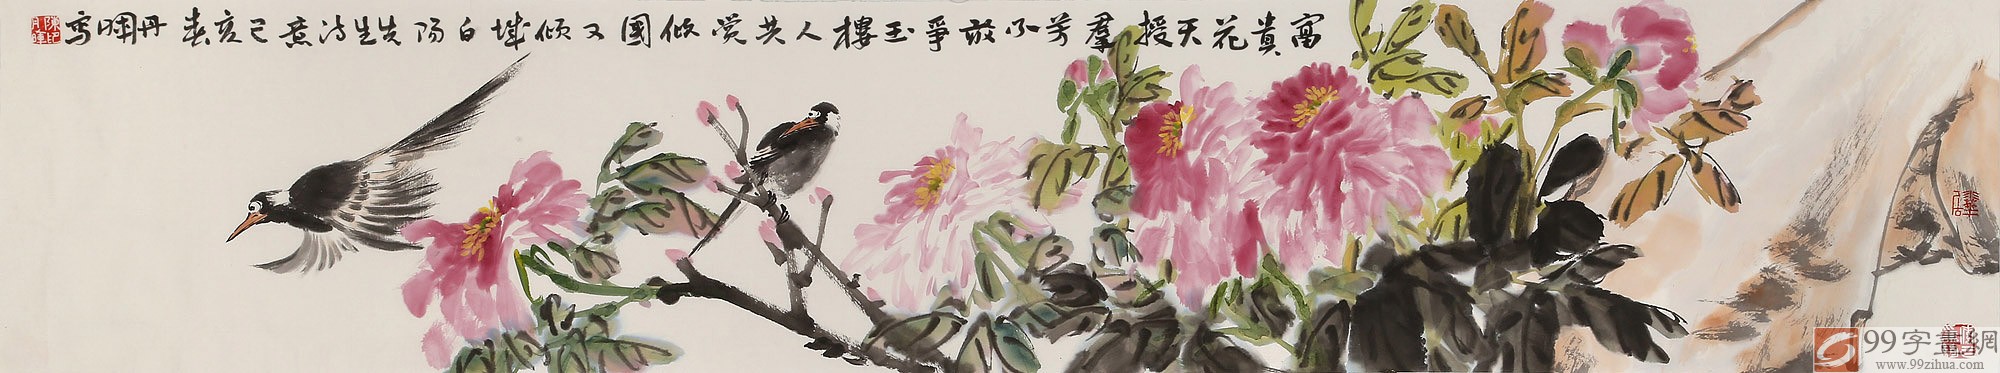 富貴花天授群芳不敢爭玉樓人共賞傾國又傾城白陽先生詩意己亥春丹暉寫
99字畫網
www.99zihua.com